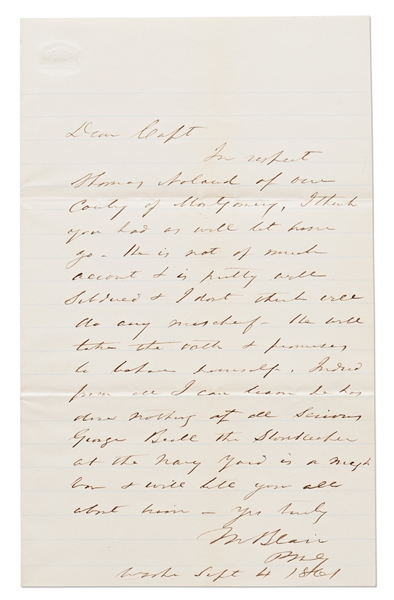 Dear Capt
In respect
Thomas Noland of our
County of Montgomery, I think
you had as well let him
go. He is not of much
account & is pretty well
subdued & I dont think will
do any mischief – He will
take the oath & promises
to behave himself. Indeed
from all I can learn he has
done nothing at all serious
George Bell the Storekeeper
at the Navy Yard is a neigh
bor & will tell you all
about him – Yrs truly
M Blair
PMG
Washn Sept 4 1861